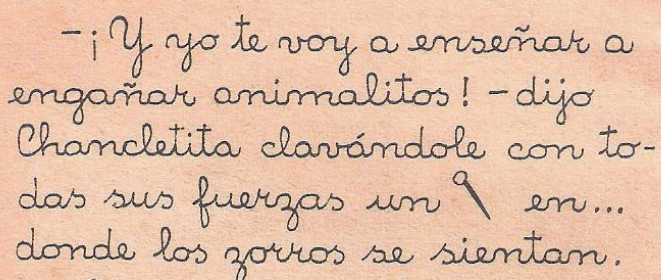 -¡Y yo te voy a enseñar a
engañar animalitos! -dijo
Chancletita clavándole con to-
das sus fuerzas un en...
donde los zorros se sientan.